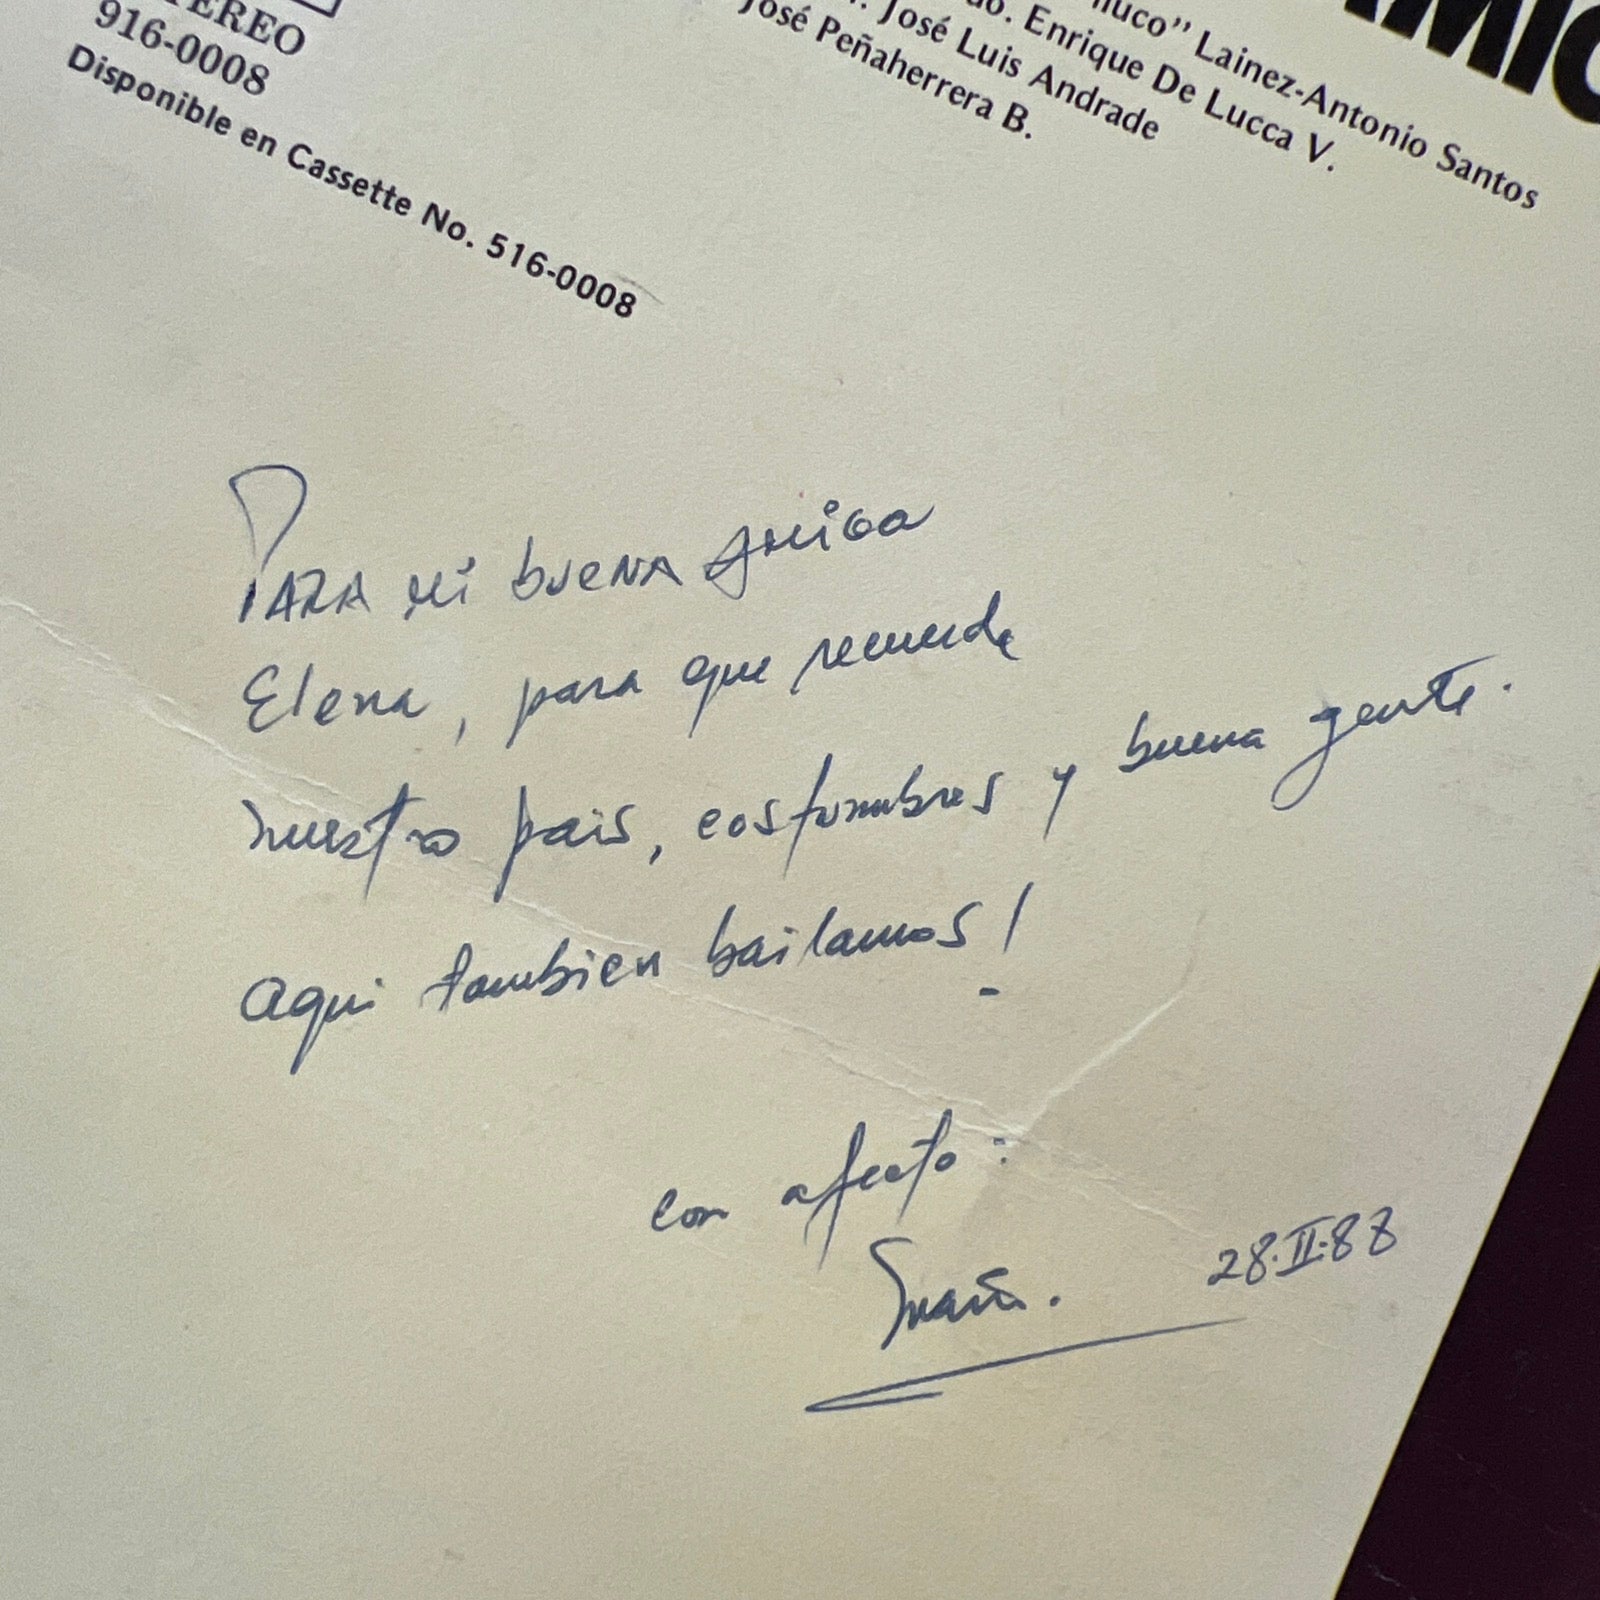 STEREO
916-0008
Disponible en Cassette No. 516-0008
Lainez-Antonio Santos
Enrique De Lucca V.
José Luis Andrade
José Peñaherrera B.
PARA mi buena amiga
Elena, para que recuerde
nuestro pais, costumbres y buena gente.
Aqui tambien bailamos!
con afecto:
28.II.88